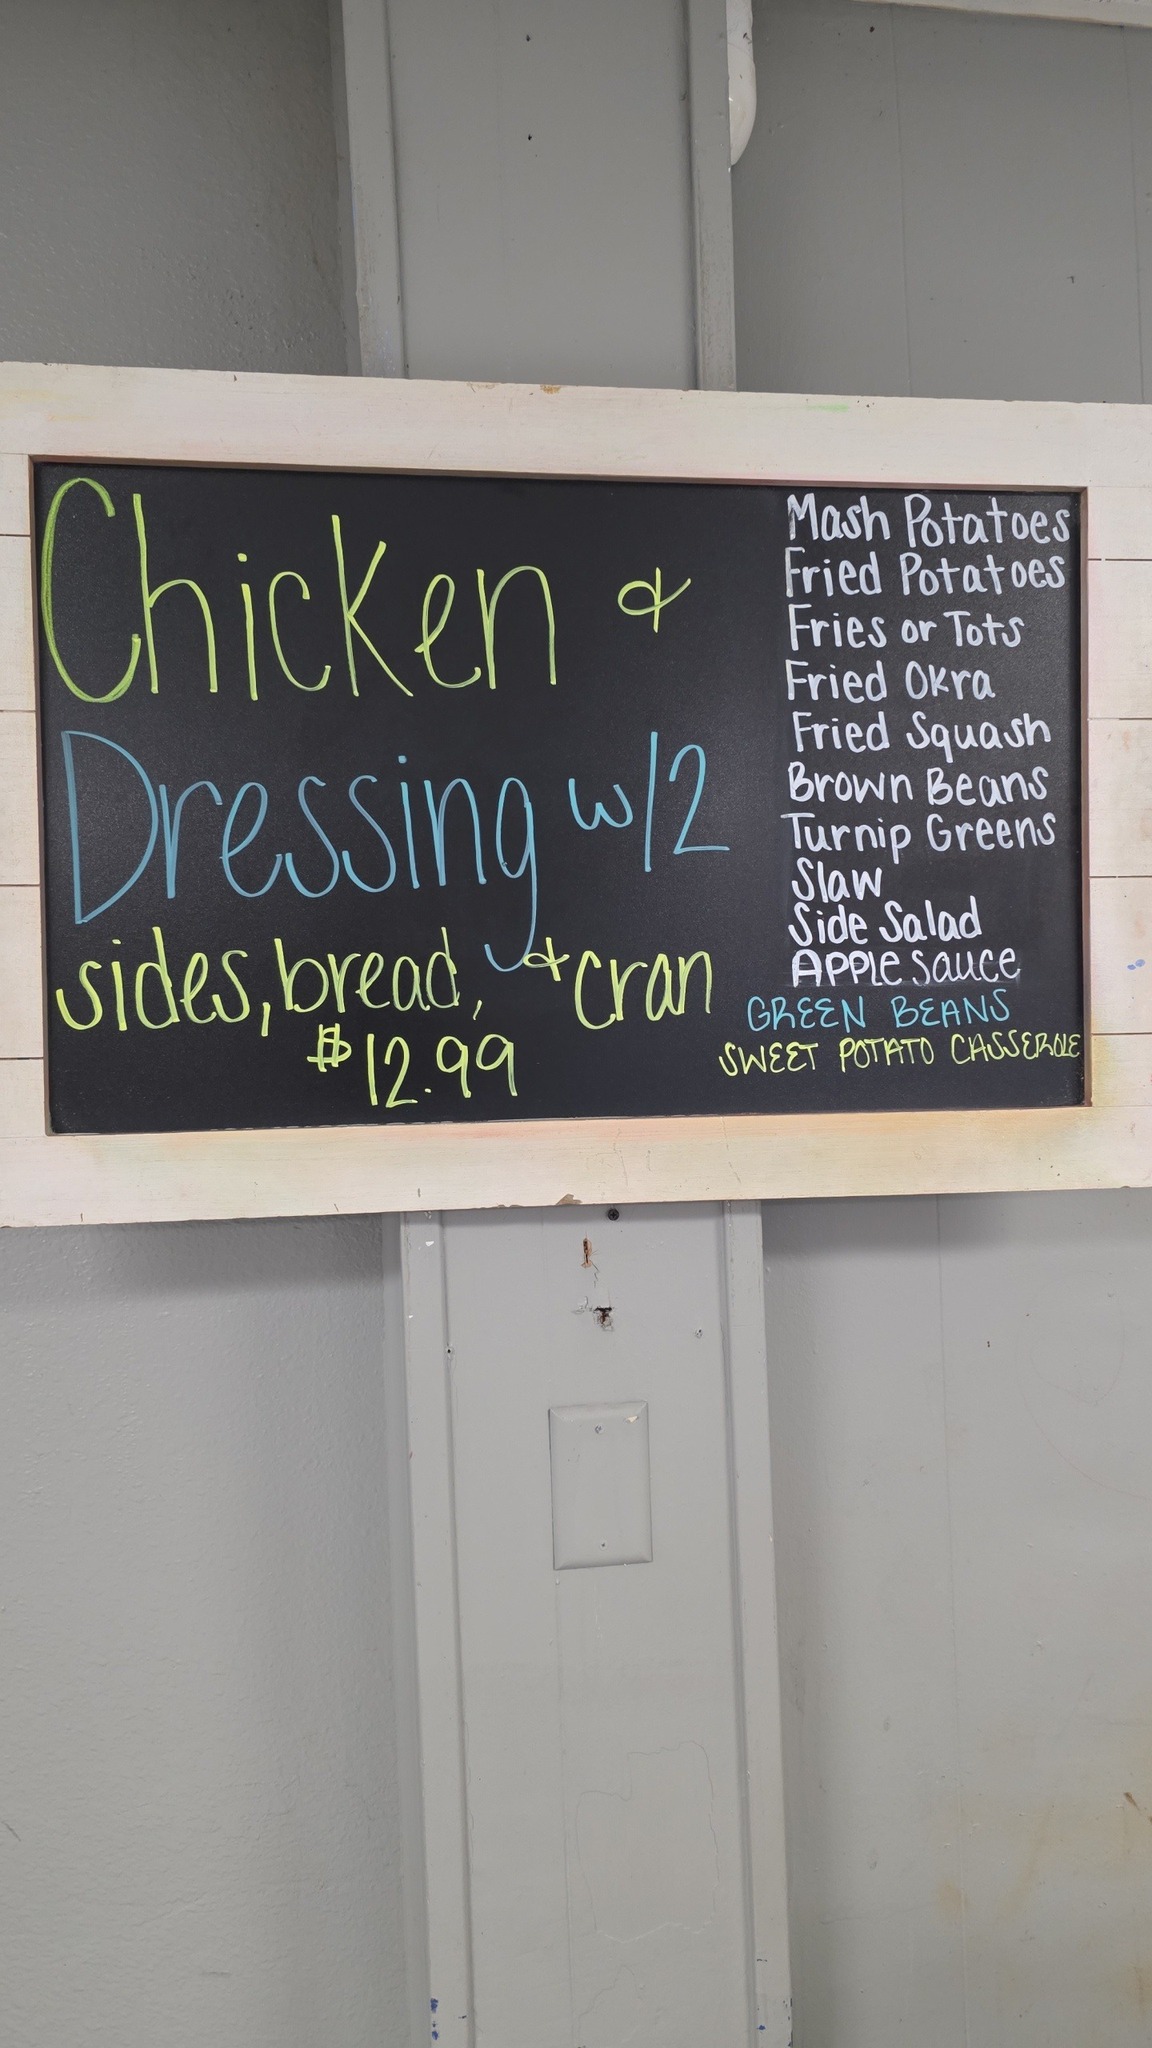 Chicken &
Dressing w/2
sides, bread, & cran
$12.99
Mash Potatoes
Fried Potatoes
Fries or Tots
Fried Okra
Fried Squash
Brown Beans
Turnip Greens
Slaw
Side Salad
APPLE sauce
GREEN BEANS
SWEET POTATO CASSEROLE